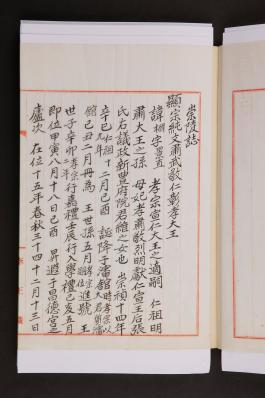 崇陵誌
顯宗純文肅武敬仁彰孝大王
諱棩字景直 孝宗宣仁大王之適嗣 仁祖明
肅大王之孫 母妃孝肅敬烈明獻仁宣王后張
氏右議政新豐府院君維之女也 崇禎十四年
辛巳 十二月己酉 誕降于瀋舘
舘己丑二月冊為 王世孫五月 進號 王
世子辛卯 行嘉禮壬辰行入學禮己亥五月
即位甲寅八月十八日己酉 昇遐于昌德宮之
廬次 在位十五年春秋三十四十二月十三日